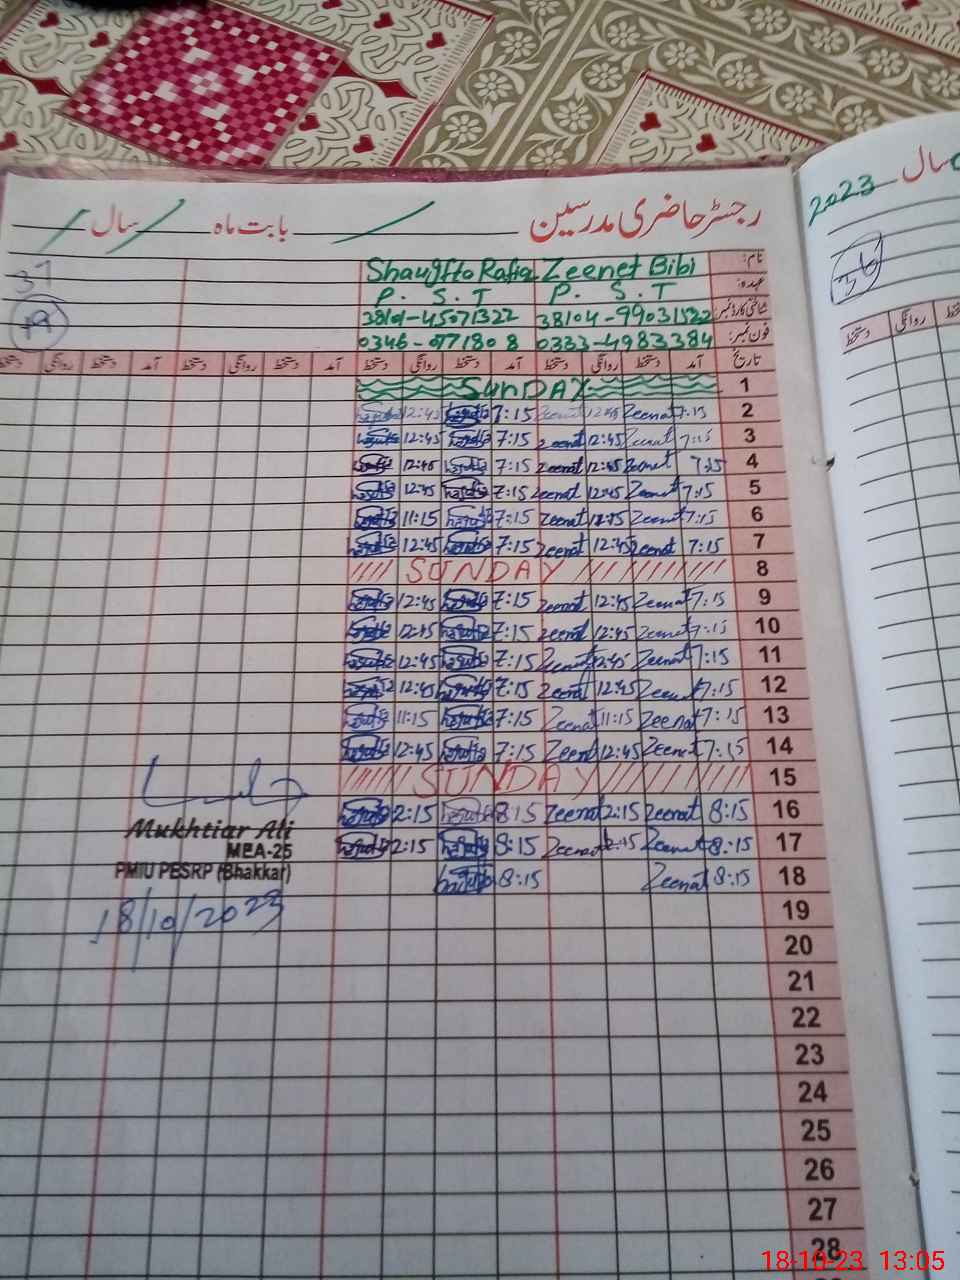 رجسٹر حاضری مدرسین بابت ماہ سال
2023 سال
نام: Zeenet Bibi Shaugfta Rafiq
عہدہ: P. S. T P. S. T
شناختی کارڈ نمبر: 38104-99031522
فون نمبر: 0333-4983384
37
تاریخ آمد دستخط روانگی دستخط آمد دستخط روانگی دستخط آمد دستخط روانگی دستخط آمد دستخط روانگی دستخط
روانگی دستخط
1 SUNDAY
2 7:15 Zeenat 12:45 Zeenat 7:15 12:45
3 7:15 Zeenat 12:45 Zeenat 7:15 12:45
4 7:15 Zeenat 12:45 Zeenat 7:15 12:45
5 7:15 Zeenat 12:45 Zeenat 7:15 12:45
6 7:15 Zeenat Zeenat 7:15 11:15
7 7:15 Zeenat 12:45 Zeenat 7:15 12:45
8 SUNDAY
9 7:15 Zeenat 12:45 Zeenat 7:15 12:45
10 7:15 Zeenat 12:45 Zeenat 7:15 12:45
11 7:15 Zeenat 12:45 Zeenat 7:15 12:45
12 7:15 Zeenat 12:45 Zeenat 7:15 12:45
13 7:15 Zeenat 11:15 Zeenat 7:15 11:15
14 7:15 Zeenat 12:45 Zeenat 7:15 12:45
15 SUNDAY
16 8:15 Zeenat 2:15 Zeenat 8:15 2:15
17 8:15 Zeenat 2:15 Zeenat 8:15 2:15
18 8:15 Zeenat 8:15
19
20
21
22
23
24
25
26
27
28
Mukhtiar Ali
MEA-25
PMIU PESRP (Bhakkar)
18/10/2023
18-10-23 13:05